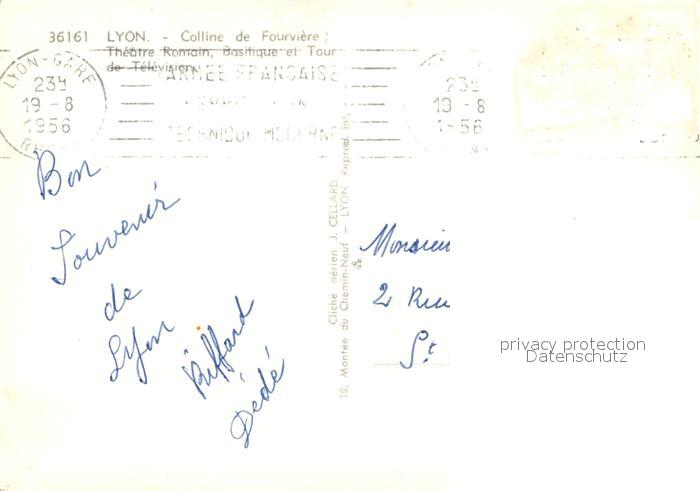 36161 LYON. - Colline de Fourvière ;
Théâtre Romain, Basilique et Tour
de Télévision.
LYON-GARE
23H
19 - 8
1956
ARMÉE FRANÇAISE
TECHNIQUE MODERNE
23H
19 - 8
1956
Bon
Souvenir
de
Lyon
Riffard
Dédé
Cliché aérien J. CELLARD
18, Montée du Chemin-Neuf — LYON Reprod. int.
Monsieur
2 Rue
St
privacy protection
Datenschutz